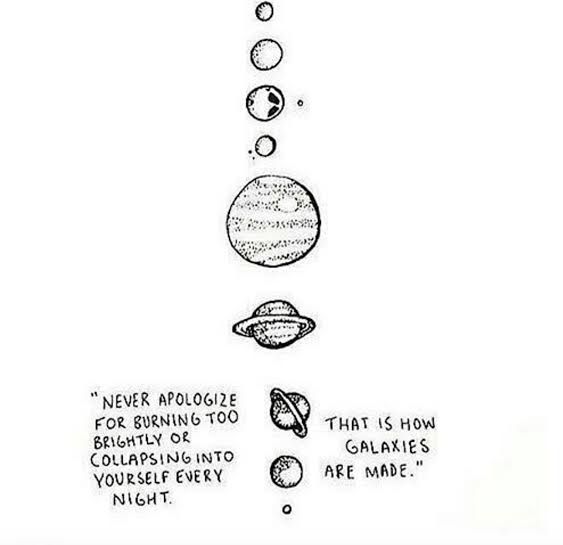 "NEVER APOLOGIZE
FOR BURNING TOO
BRIGHTLY OR
COLLAPSING INTO
YOURSELF EVERY
NIGHT.
THAT IS HOW
GALAXIES
ARE MADE."